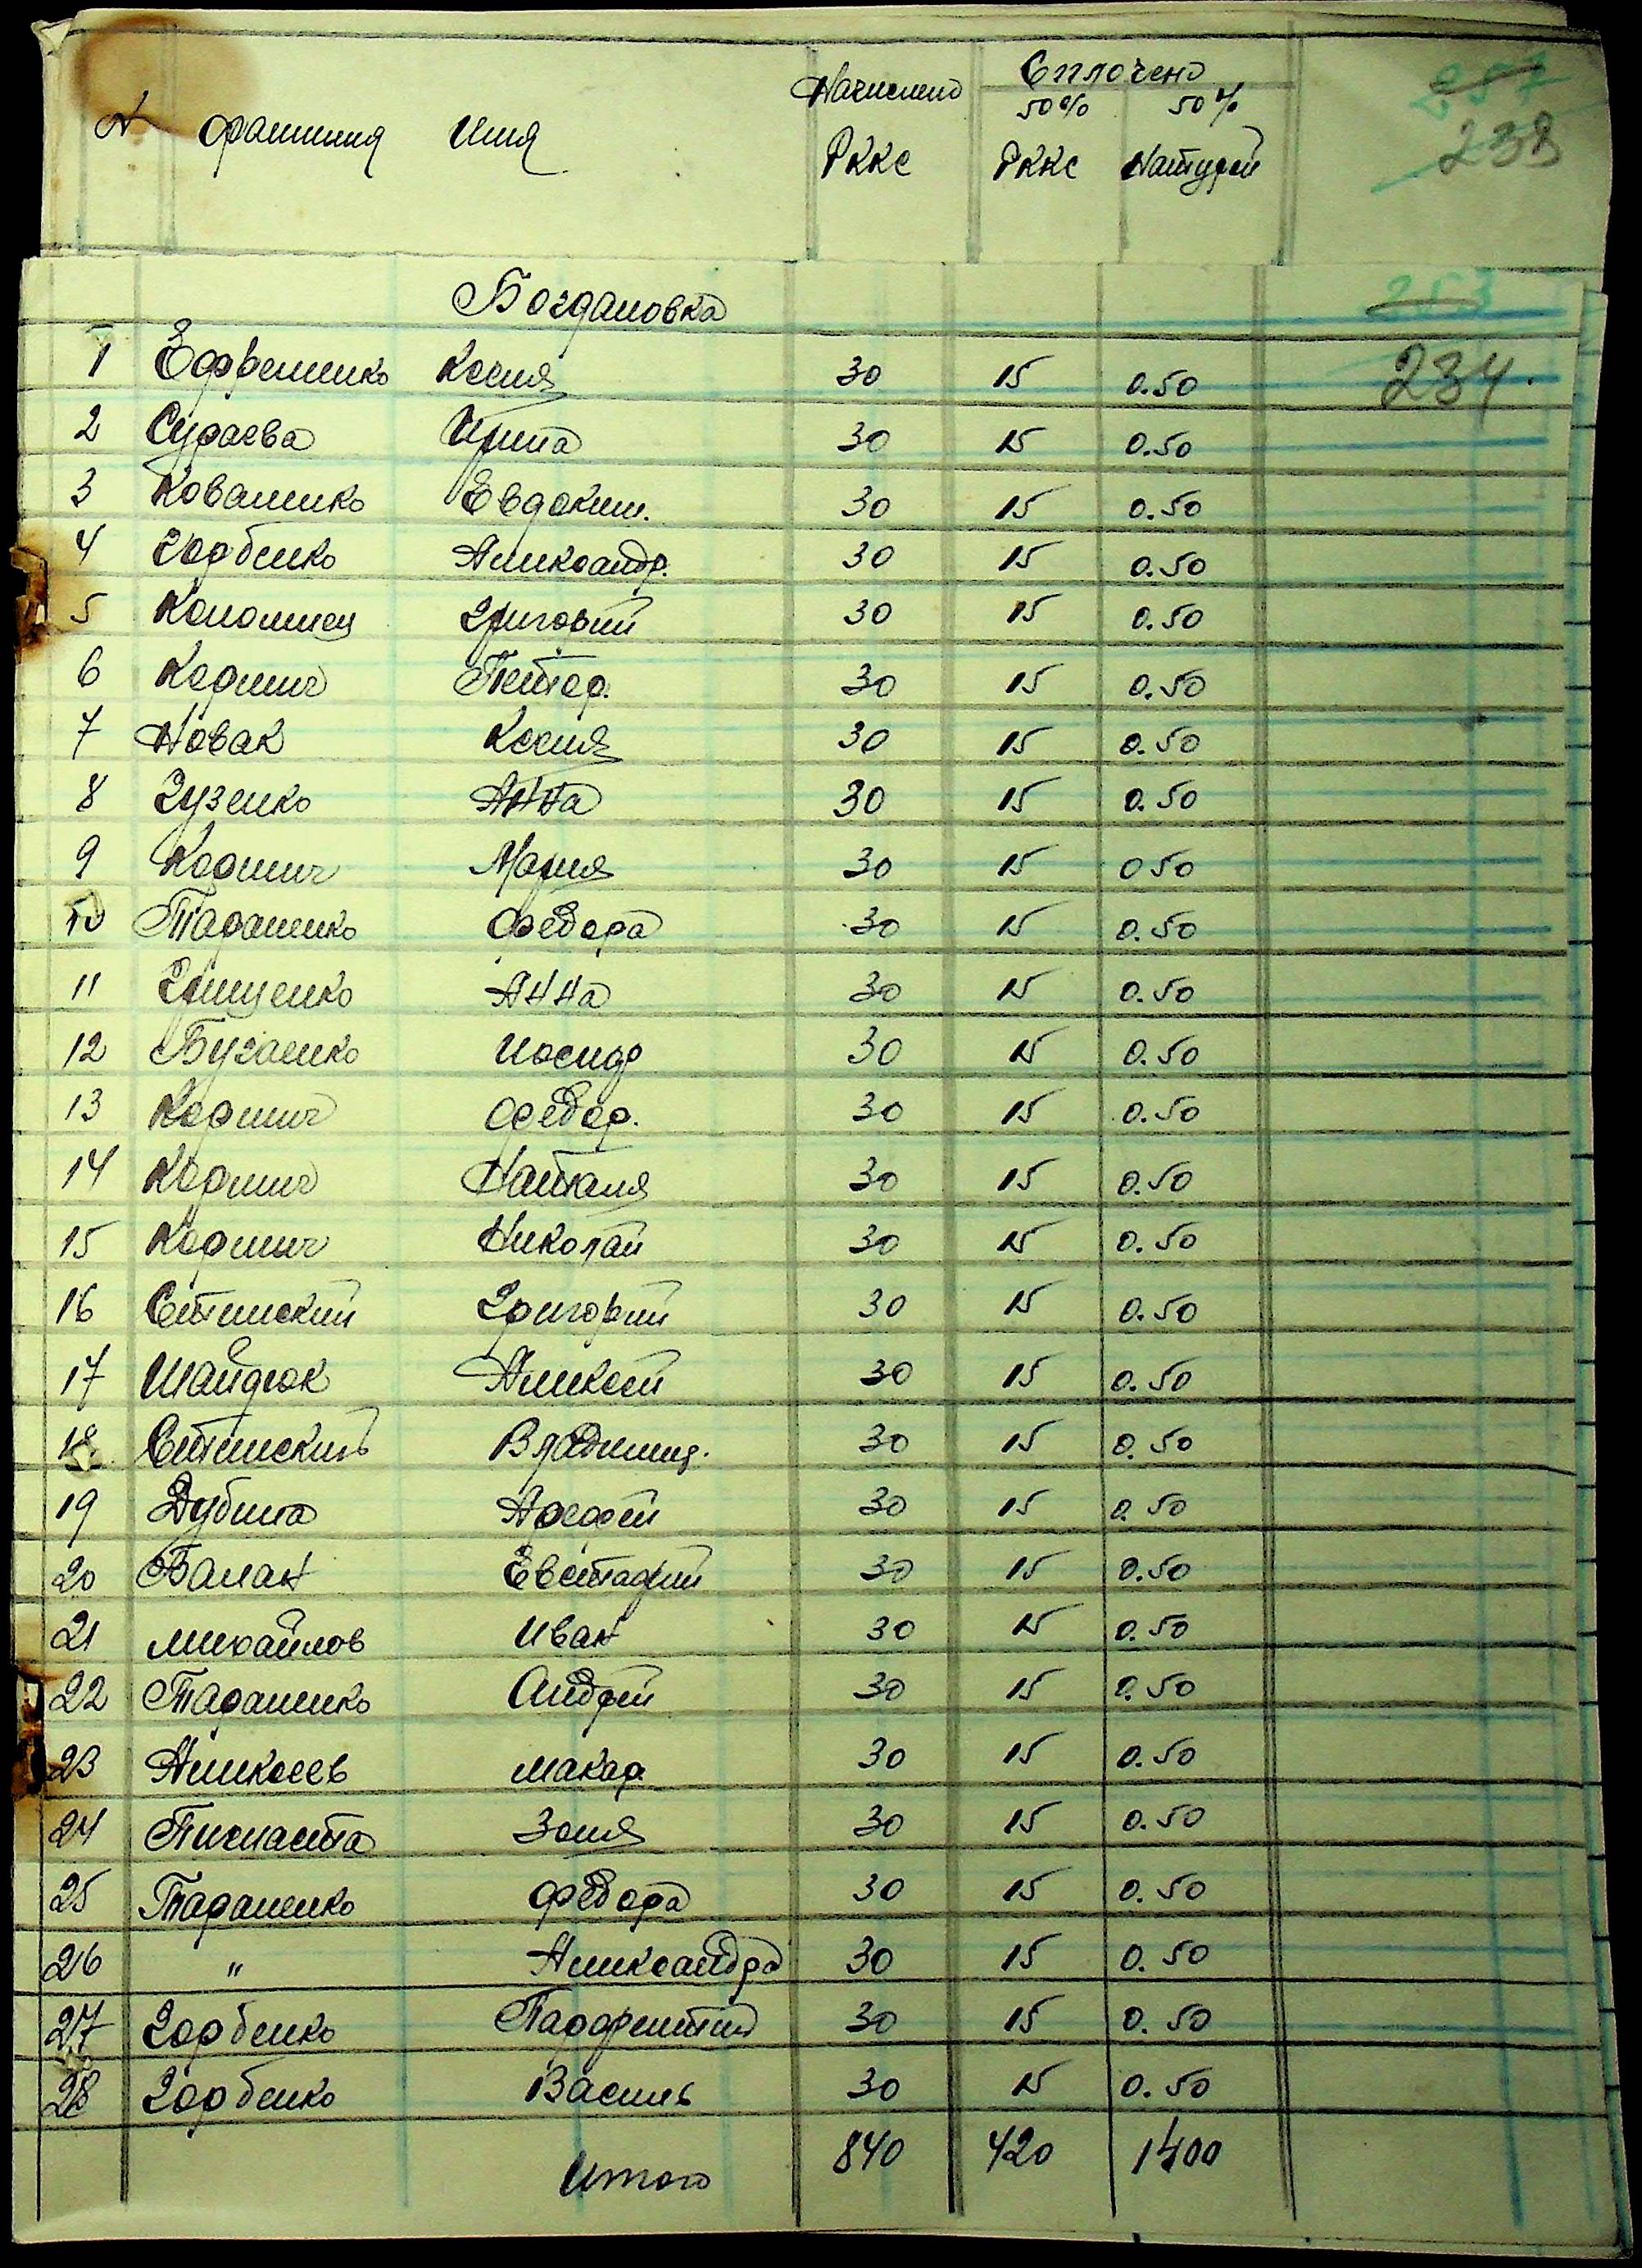 257
238
N Фамилия Имя Начислено Сплочено
50% 50%
РККС РККС Натурой
Богдановка
253
1 Ефременко Ксения 30 15 0.50 234.
2 Сураева Ирина 30 15 0.50
3 Коваленко Евдоким. 30 15 0.50
4 Горбенко Александр. 30 15 0.50
5 Коломиец Григорий 30 15 0.50
6 Кормич Петор. 30 15 0.50
7 Новак Ксения 30 15 0.50
8 Гузенко Анна 30 15 0.50
9 Кормич Мария 30 15 0 50
10 Тараненко Федора 30 15 0.50
11 Грищенко Анна 30 15 0.50
12 Бугаенко Иосиф 30 15 0.50
13 Кормич Федор. 30 15 0.50
14 Кормич Наталя 30 15 0.50
15 Кормич Николай 30 15 0.50
16 Ситинский Григорий 30 15 0.50
17 Шайдюк Алексей 30 15 0.50
18 Ситинский Владимир. 30 15 0.50
19 Дубина 30 15 0.50
20 Балан Евстафий 30 15 0.50
21 Михайлов Иван 30 15 0.50
22 Тараненко Андрей 30 15 0.50
23 Алексеев Макар 30 15 0.50
24 Зоня 30 15 0.50
25 Тараненко Федора 30 15 0.50
26 " Александра 30 15 0.50
27 Горбенко 30 15 0.50
28 Горбенко Василь 30 15 0.50
Итого 840 420 1400